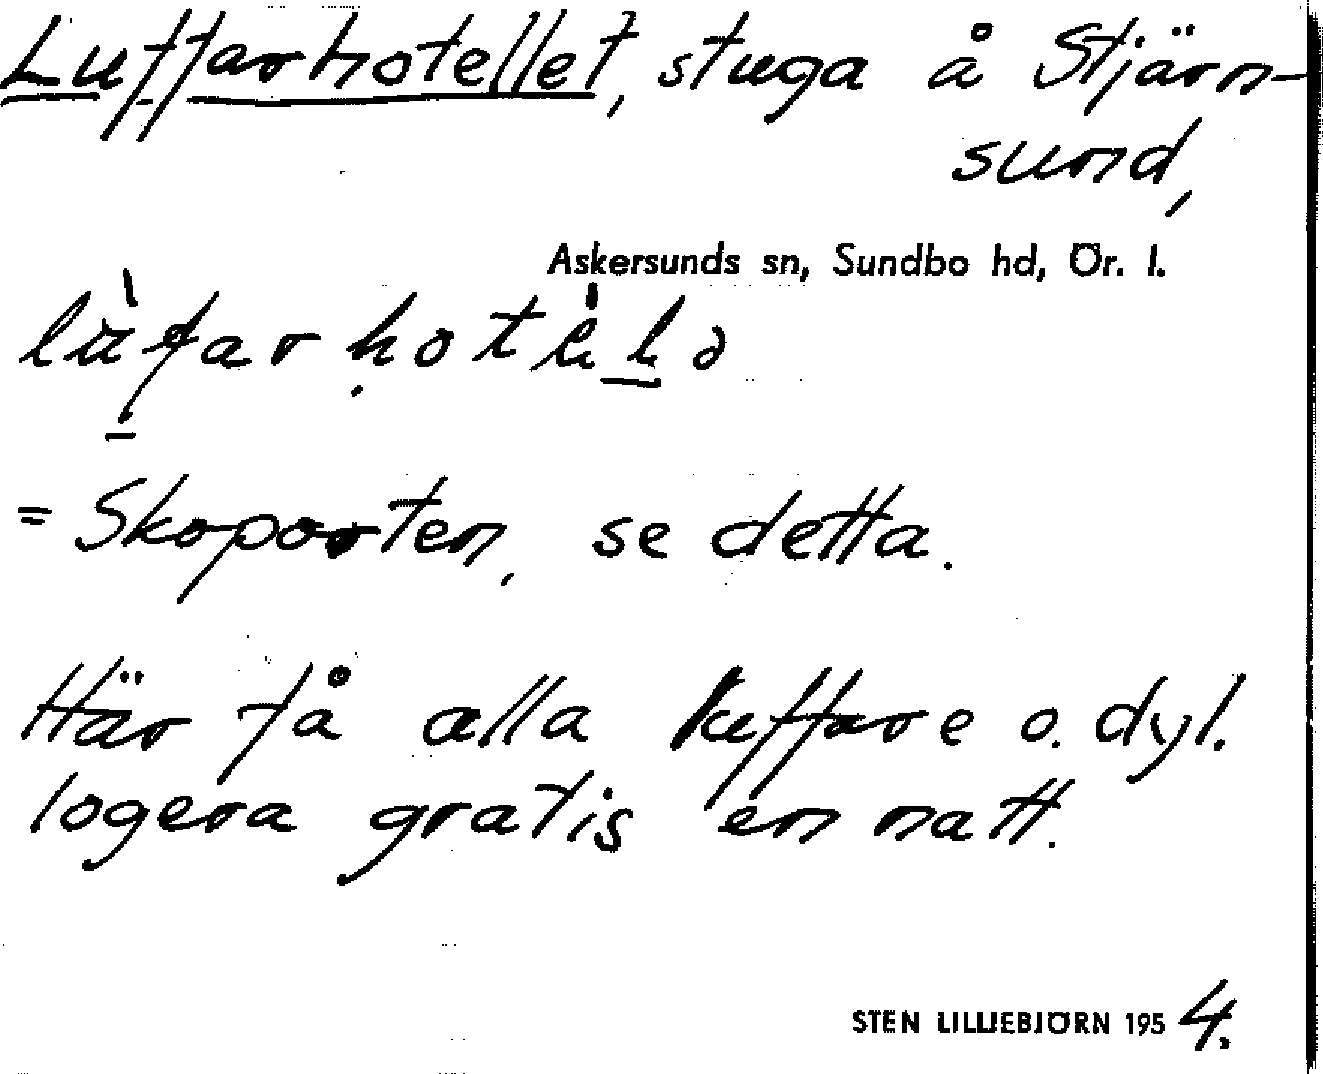 Luffarhotellet, stuga å Stjärn-
sund,
Askersunds sn, Sundbo hd, Ör. l.
= Skoporten, se detta.
Här få alla luffare o. dyl.
logera gratis en natt.
STEN LILLIEBJÖRN 1954.